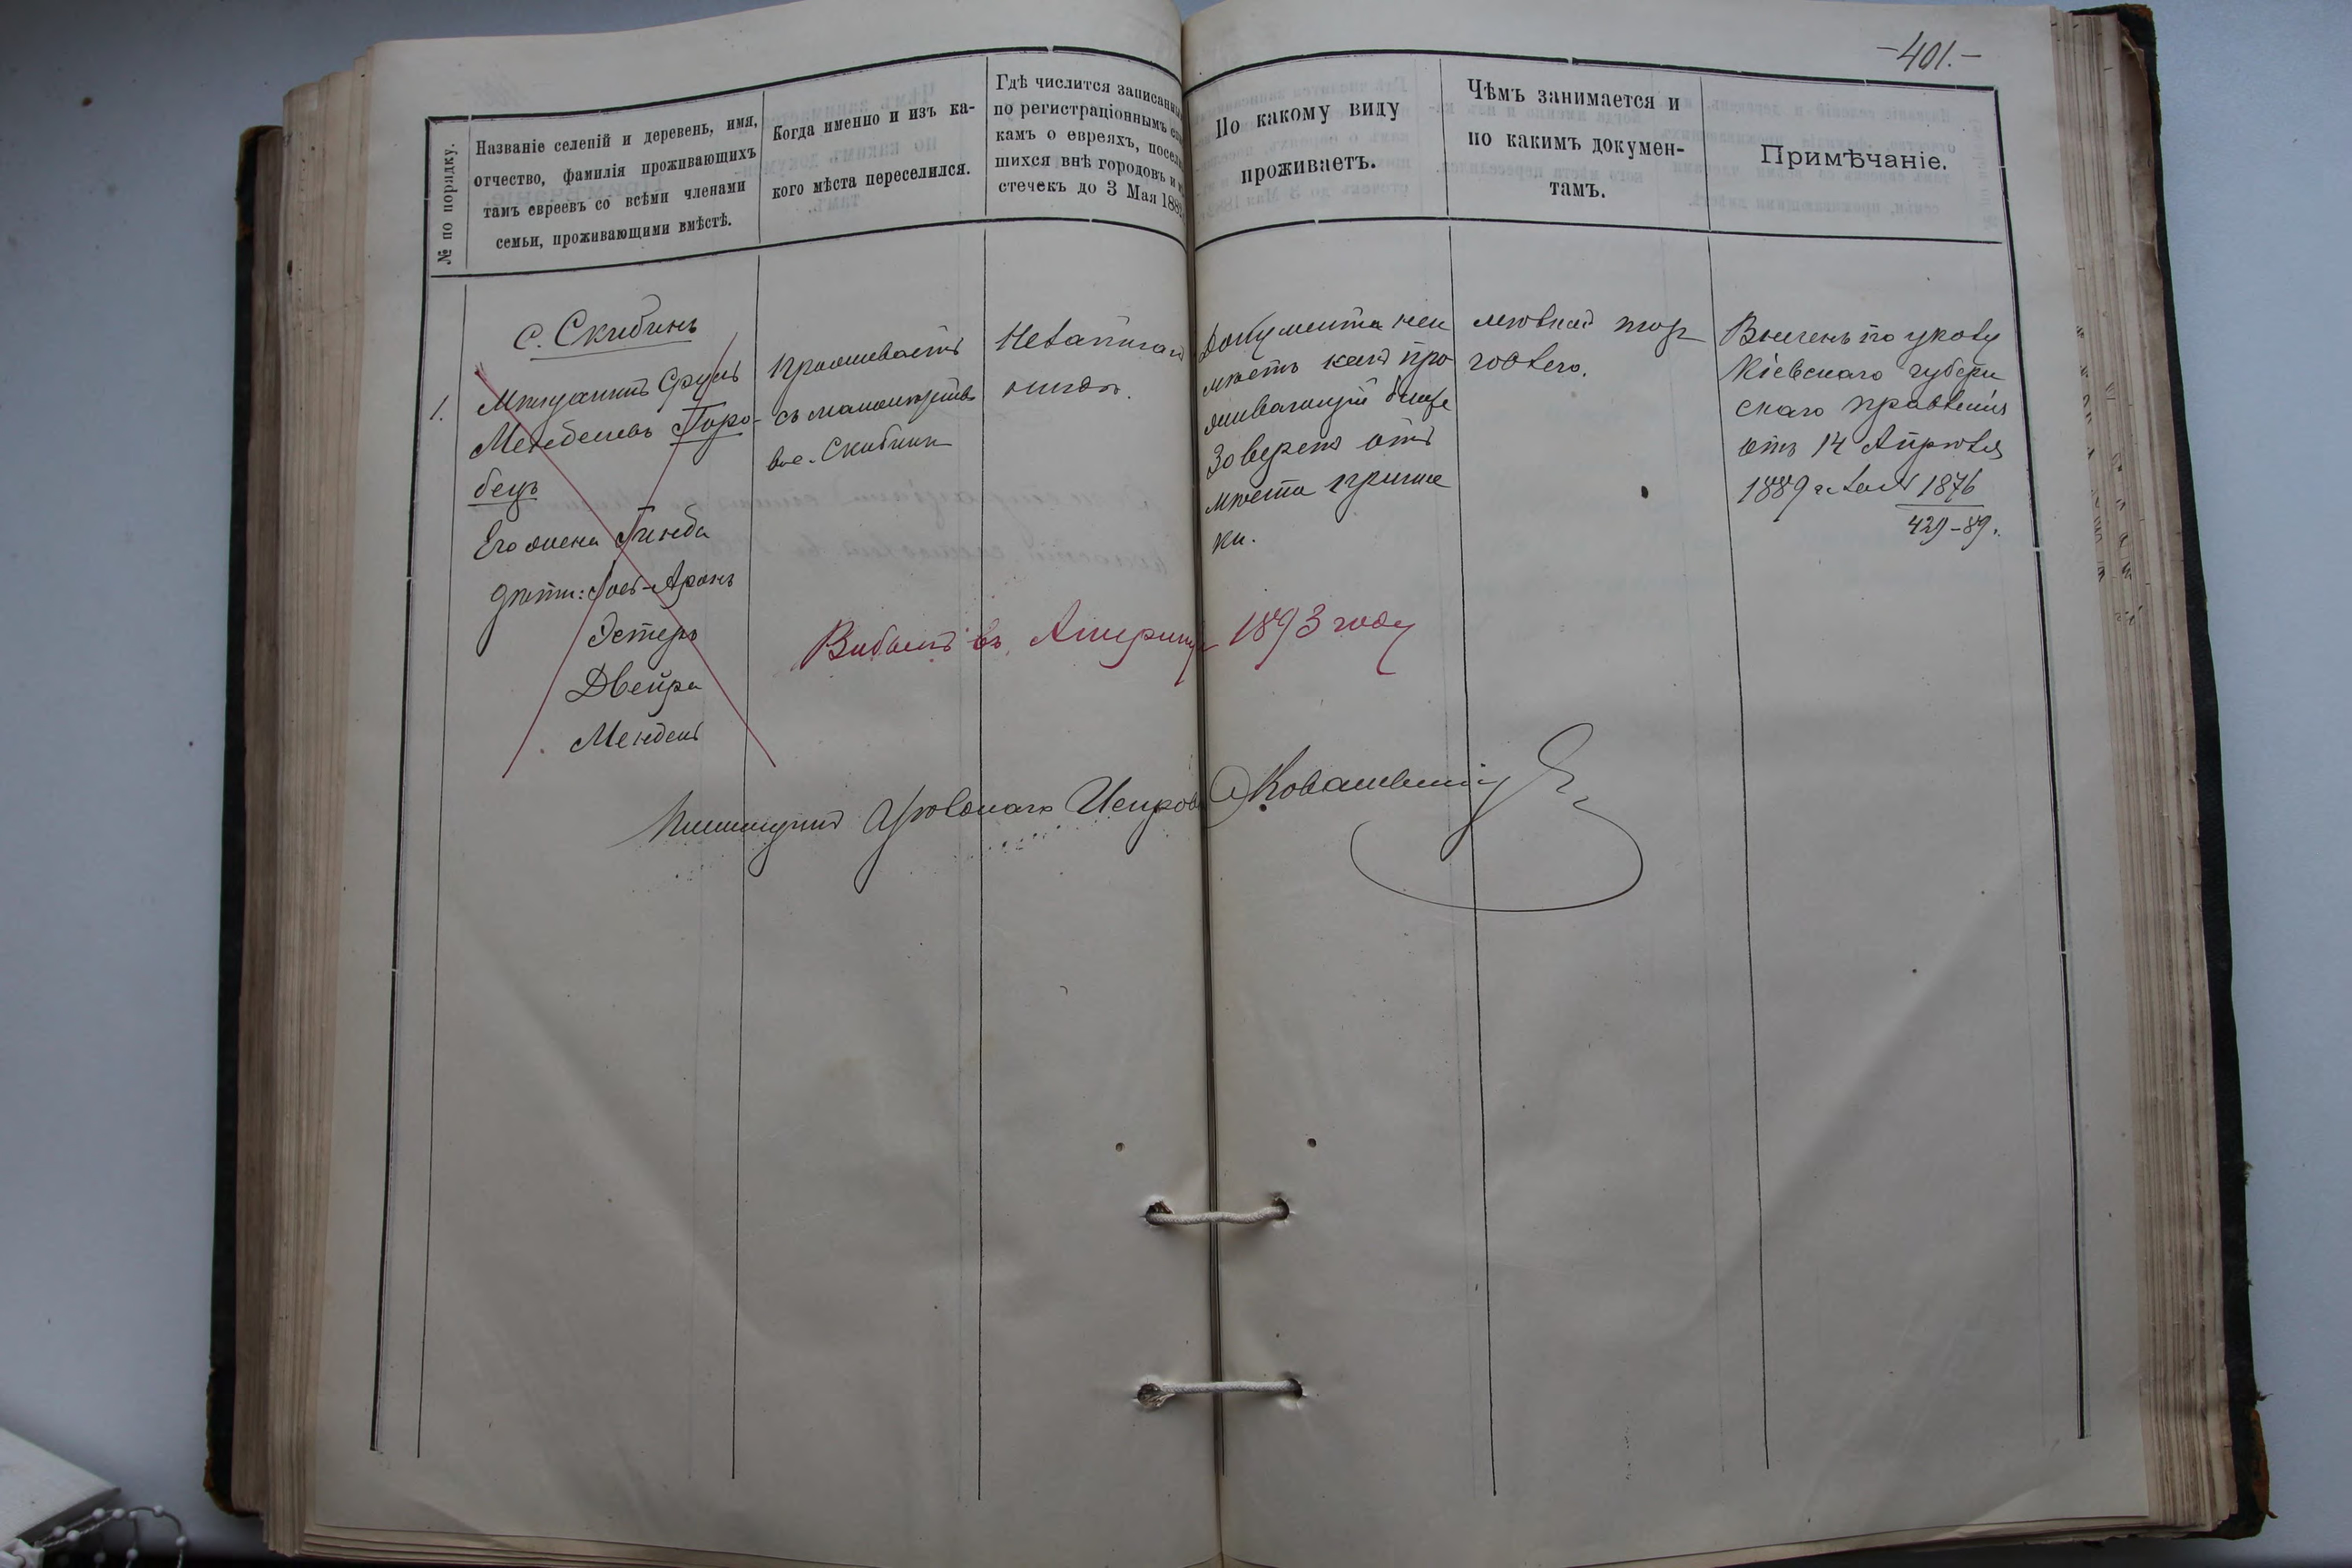 -401.-
№ по порядку.
Названіе селеній и деревень, имя,
отчество, фамилія проживающихъ
тамъ евреевъ со всѣми членами
семьи, проживающими вмѣстѣ.
Когда именно и изъ ка-
кого мѣста переселился.
Гдѣ числится записанны
по регистраціоннымъ
камъ о евреяхъ, посел
шихся внѣ городовъ и
стечекъ до 3 Мая 188
По какому виду
проживаетъ.
Чѣмъ занимается и
по какимъ докумен-
тамъ.
Примѣчаніе.
С. Скибинъ
1.
Мѣщанинъ Сруль
Менделевъ Горо-
бецъ
Его жена
дѣти: -Аронъ
Эстеръ
Двейра
Мендель
Проживаетъ
съ малолѣтства
въ с. Скибинѣ
Незаписан
нигдѣ.
Документа неи
мѣетъ какъ про
живающій
отъ
мѣста припис
ки.
мѣлкой тор
говлею.
по указу
Кіевскаго губерн
скаго правленія
отъ 14 Апрѣля
1889 г. за № 1876
429-89.
Выбылъ въ Америку 1893 году
Помощникъ Уѣзднаго Исправ